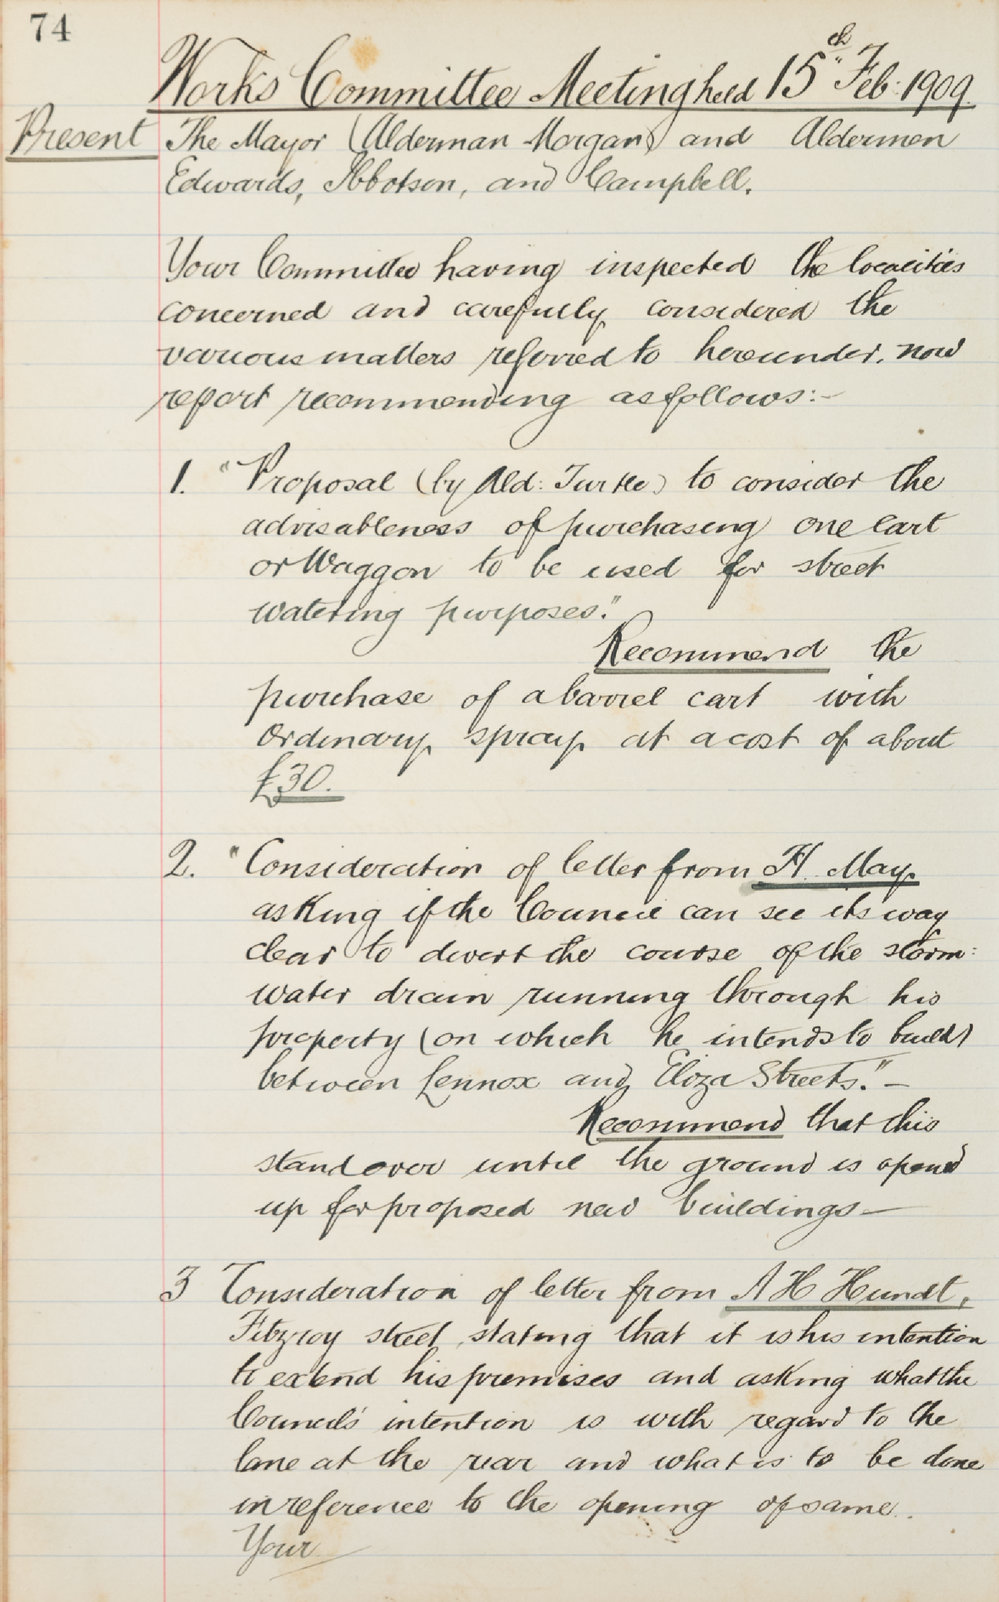 74
Works Committee Meeting held 15th Feb: 1909.
Present The Mayor (Alderman Morgan) and Aldermen
Edwards, Ibbotson, and Campbell.
Your Committee having inspected the localities
concerned and carefully considered the
various matters referred to hereunder, now
report recommending as follows:-
1. "Proposal (by Ald: Turtle) to consider the
advisableness of purchasing one cart
or Waggon to be used for street
watering purposes."
Recommend the
purchase of a barrel cart with
ordinary spray at a cost of about
£30.
2. "Consideration of letter from H. May
asking if the Council can see its way
clear to divert the course of the storm:
water drain running through his
property (on which he intends to build)
between Lennox and Eliza Streets." -
Recommend that this
stand over until the ground is opened
up for proposed new buildings -
3 Consideration of letter from A H Hundt,
Fitzroy street, stating that it is his intention
to extend his premises and asking what the
Council's intention is with regard to the
lane at the rear and what is to be done
in reference to the opening of same.
Your